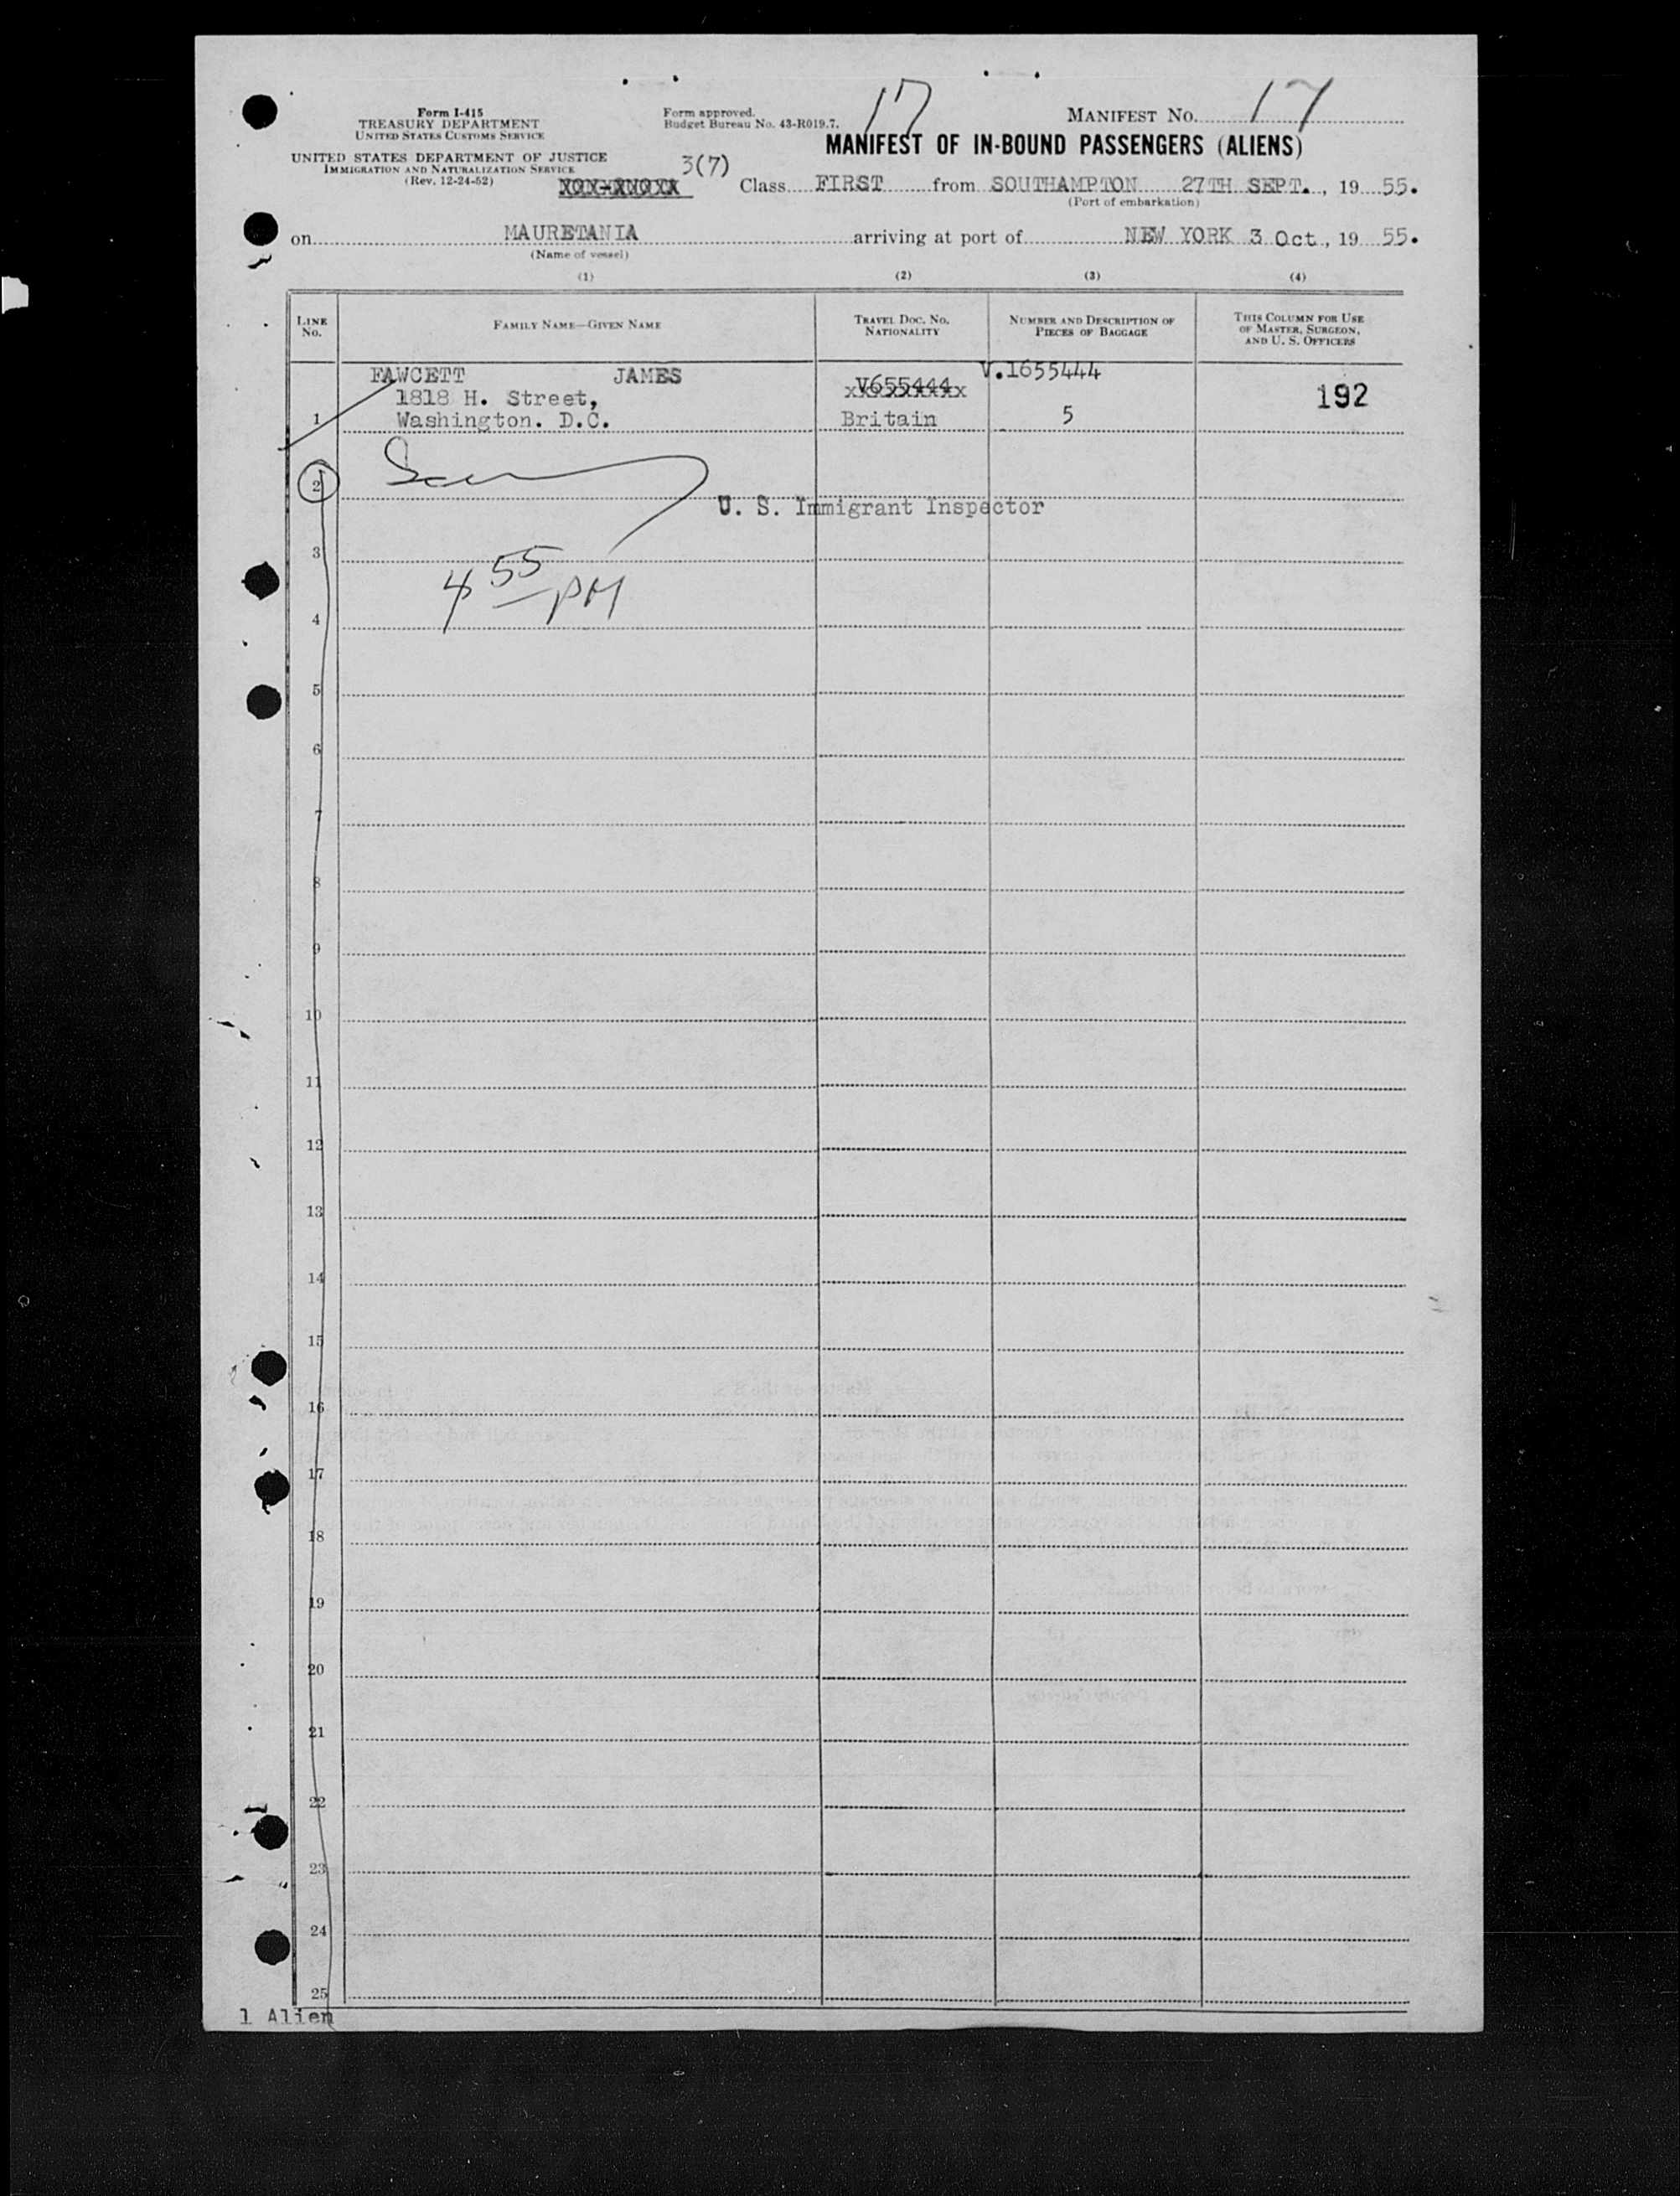 Form I-415
TREASURY DEPARTMENT
UNITED STATES CUSTOMS SERVICE
UNITED STATES DEPARTMENT OF JUSTICE
IMMIGRATION AND NATURALIZATION SERVICE
(Rev. 12-24-52)
Form approved.
Budget Bureau No. 43-R019.7.
17
MANIFEST No. 17
MANIFEST OF IN-BOUND PASSENGERS (ALIENS)
3(7)
Class FIRST from SOUTHAMPTON 27TH SEPT., 19 55.
(Port of embarkation)
on MAURETANIA arriving at port of NEW YORK 3 Oct, 19 55.
(Name of vessel)
(1) (2) (3) (4)
LINE No. FAMILY NAME—GIVEN NAME TRAVEL DOC. No. NATIONALITY NUMBER AND DESCRIPTION OF PIECES OF BAGGAGE THIS COLUMN FOR USE OF MASTER, SURGEON, AND U. S. OFFICERS
FAWCETT JAMES V655444 V.1655444
1818 H. Street, 192
1 Washington. D.C. Britain 5
2
U. S. Immigrant Inspector
3
4 55 PM
4
5
6
7
8
9
10
11
12
13
14
15
16
17
18
19
20
21
22
23
24
25
1 Alien